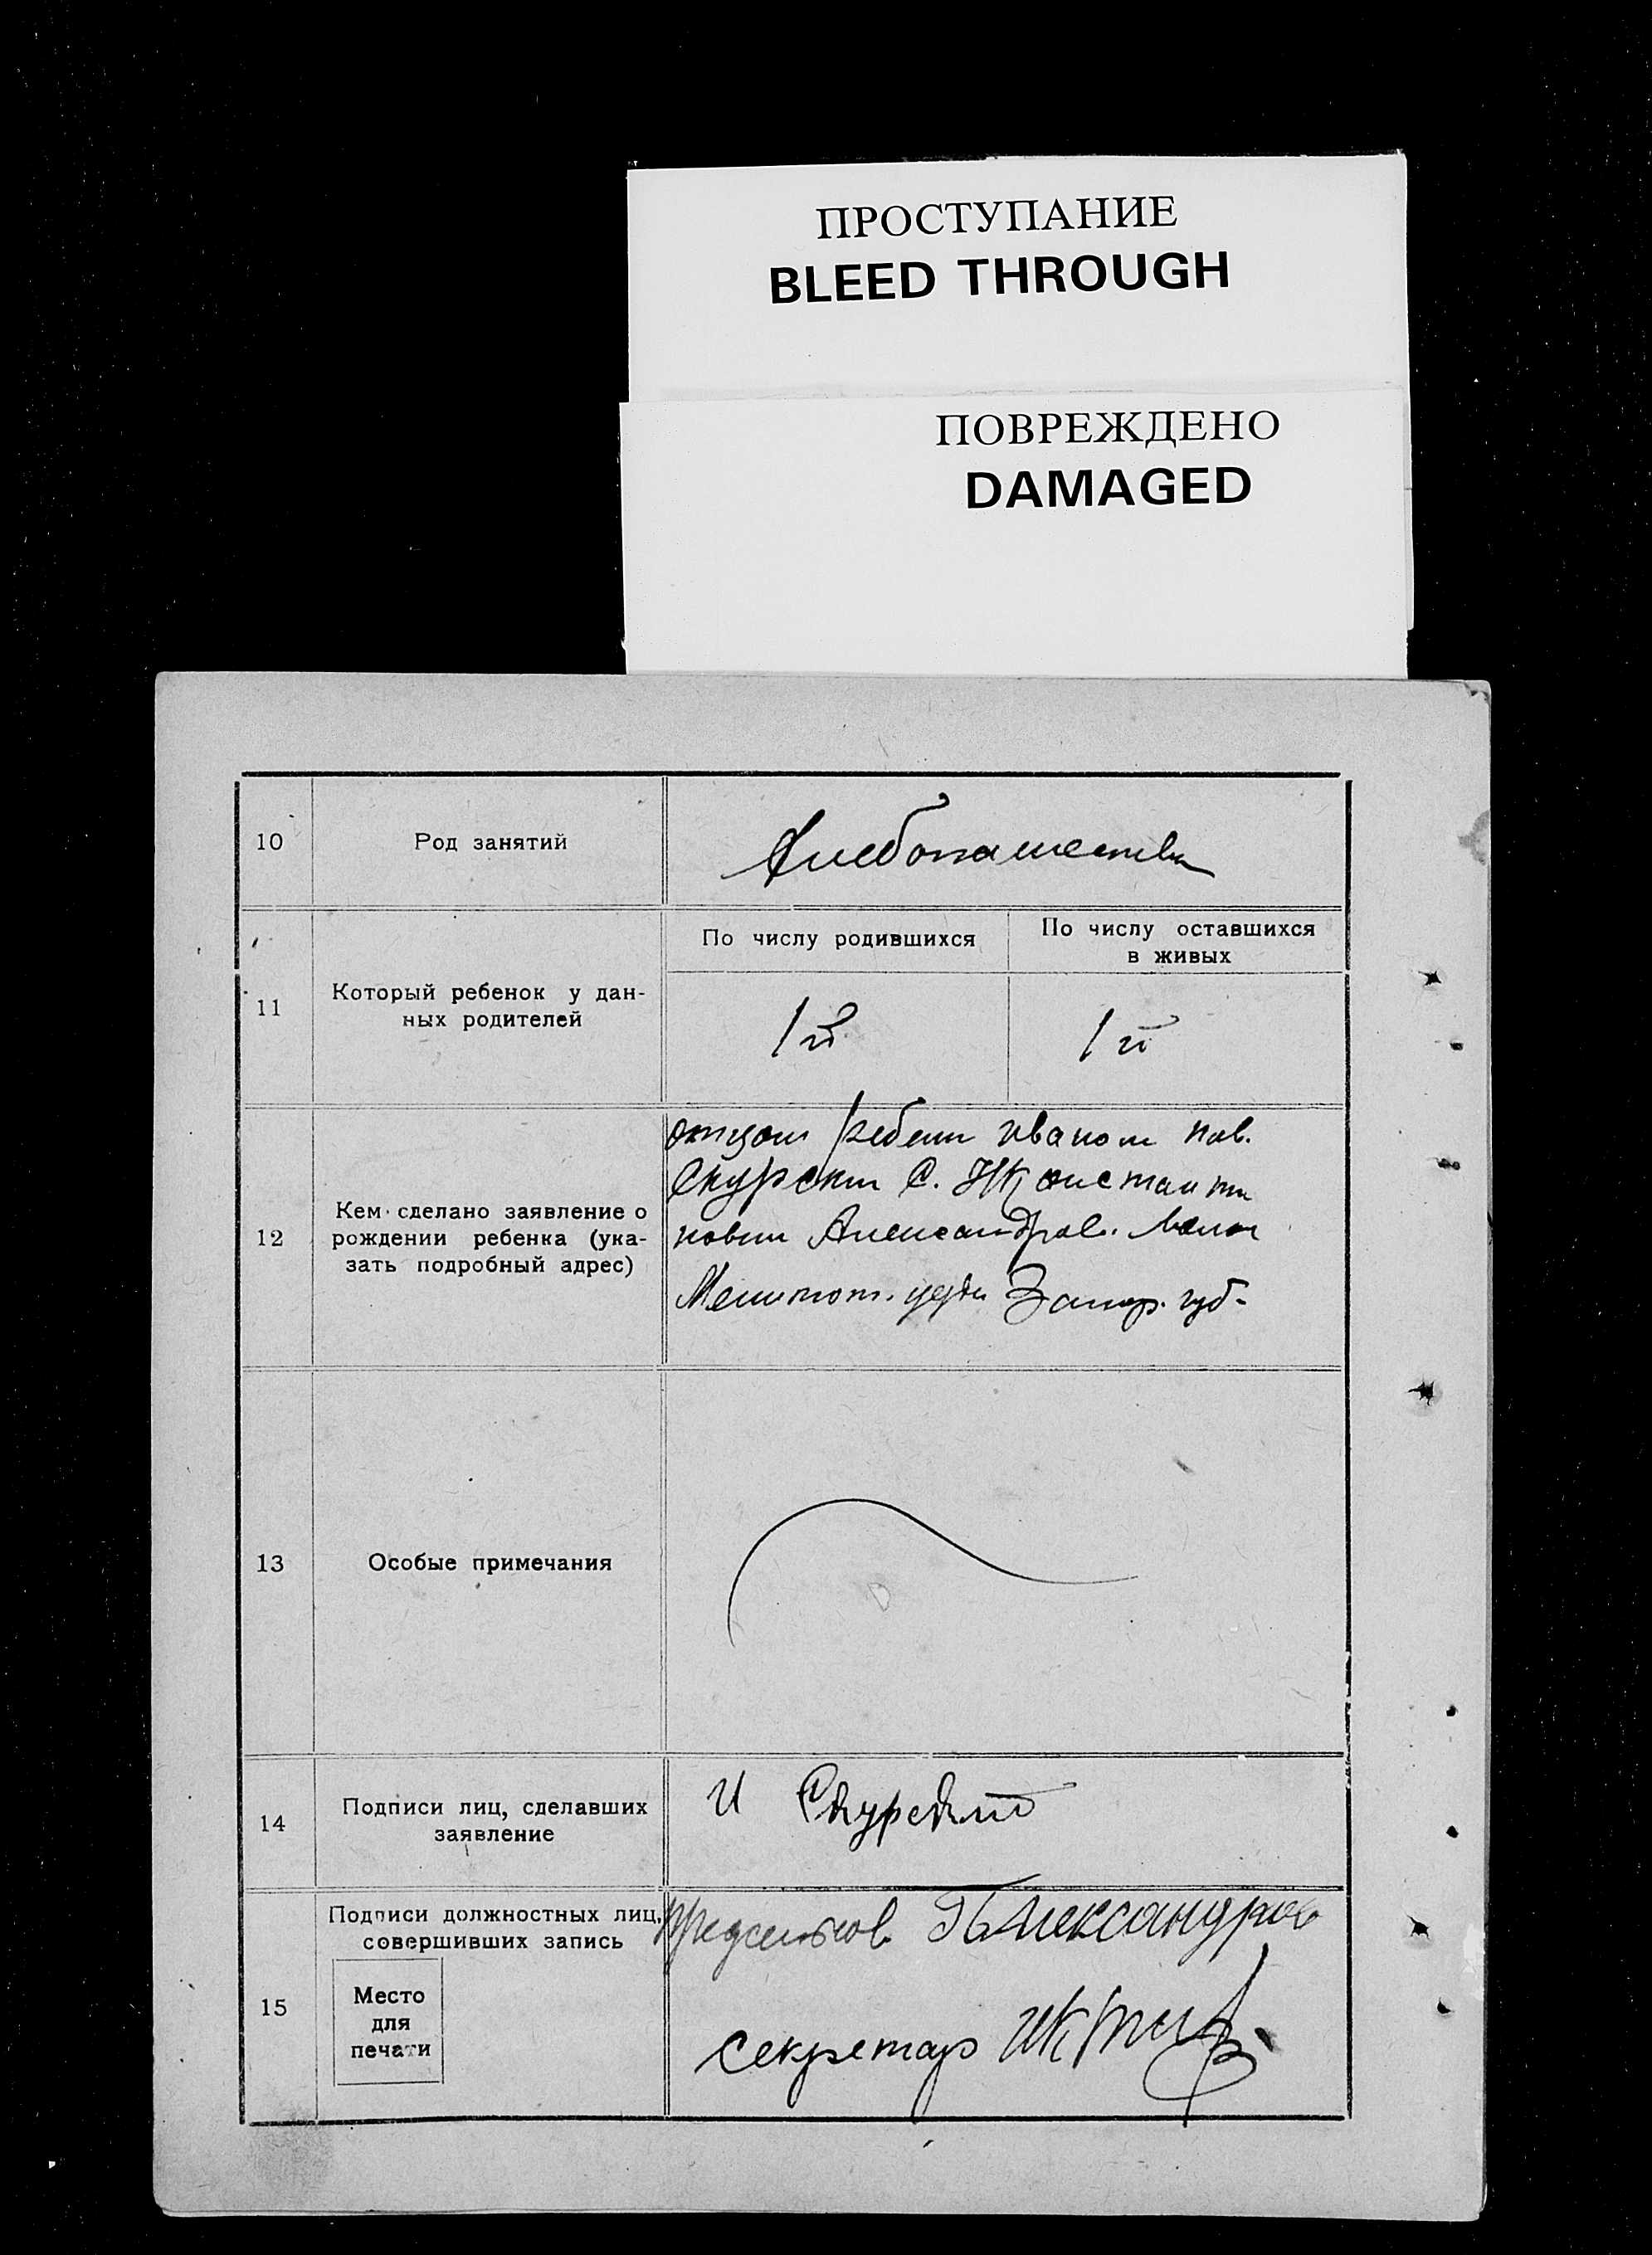 ПРОСТУПАНИЕ
BLEED THROUGH
ПОВРЕЖДЕНО
DAMAGED
10
Род занятий
Хлебопашество
11
Который ребенок у дан-
ных родителей
По числу родившихся
По числу оставшихся
в живых
1й
1й
12
Кем сделано заявление о
рождении ребенка (ука-
зать подробный адрес)
отцом ребенк Иваном Пав.
Скурским С. Н Константи
новки Александров. Волос
Мелитоп. уезда Запор. губ-
13
Особые примечания
14
Подписи лиц, сделавших
заявление
И Скурский
15
Подписи должностных лиц,
совершивших запись
Место
для
печати
Александров
секретар